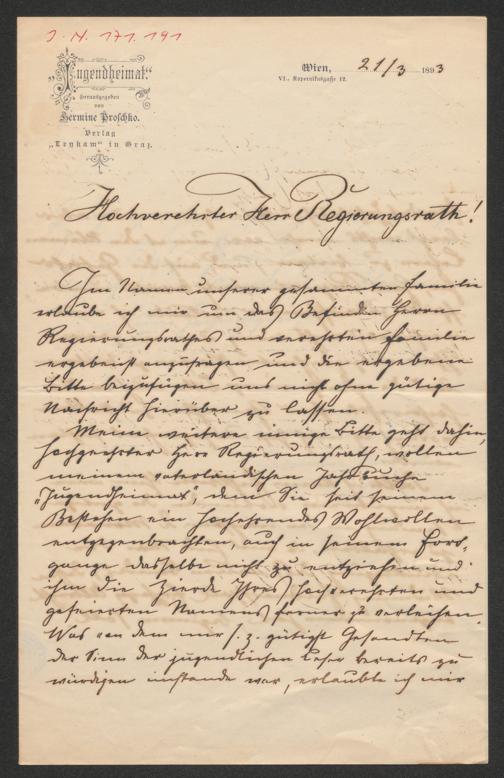 J. N. 171.191
„Jugendheimat.“
Herausgegeben
von
Hermine Proschko.
Verlag
„Leykam“ in Graz.
Wien, 21/3 1893
VI., Kopernikusgasse 12.
Hochverehrter Herr Regierungsrath!
Im Namen unserer gesammten Familie
erlaube ich mir um das Befinden Herrn
Regierungsrathes und verehrten Familie
ergebenst anzufragen und die ergebene
Bitte beizufügen uns nicht ohne gütige
Nachricht hierüber zu lassen.
Meine weitere innige Bitte geht dahin,
hochgeehrter Herr Regierungsrath, wollen
meinem vaterländischen Jahrbuche
„Jugendheimat“, dem Sie seit seinem
Bestehen ein hochehrendes Wohlwollen
entgegenbrachten, auch in seinem Fort-
gange dasselbe nicht zu entziehen und
ihm die Zierde Ihres hochverehrten und
gefeierten Namens ferner zu verleihen.
Was von dem mir s. z. gütigst Gesandten
der Sinn der jugendlichen Leser bereits zu
würdigen imstande war, erlaubte ich mir